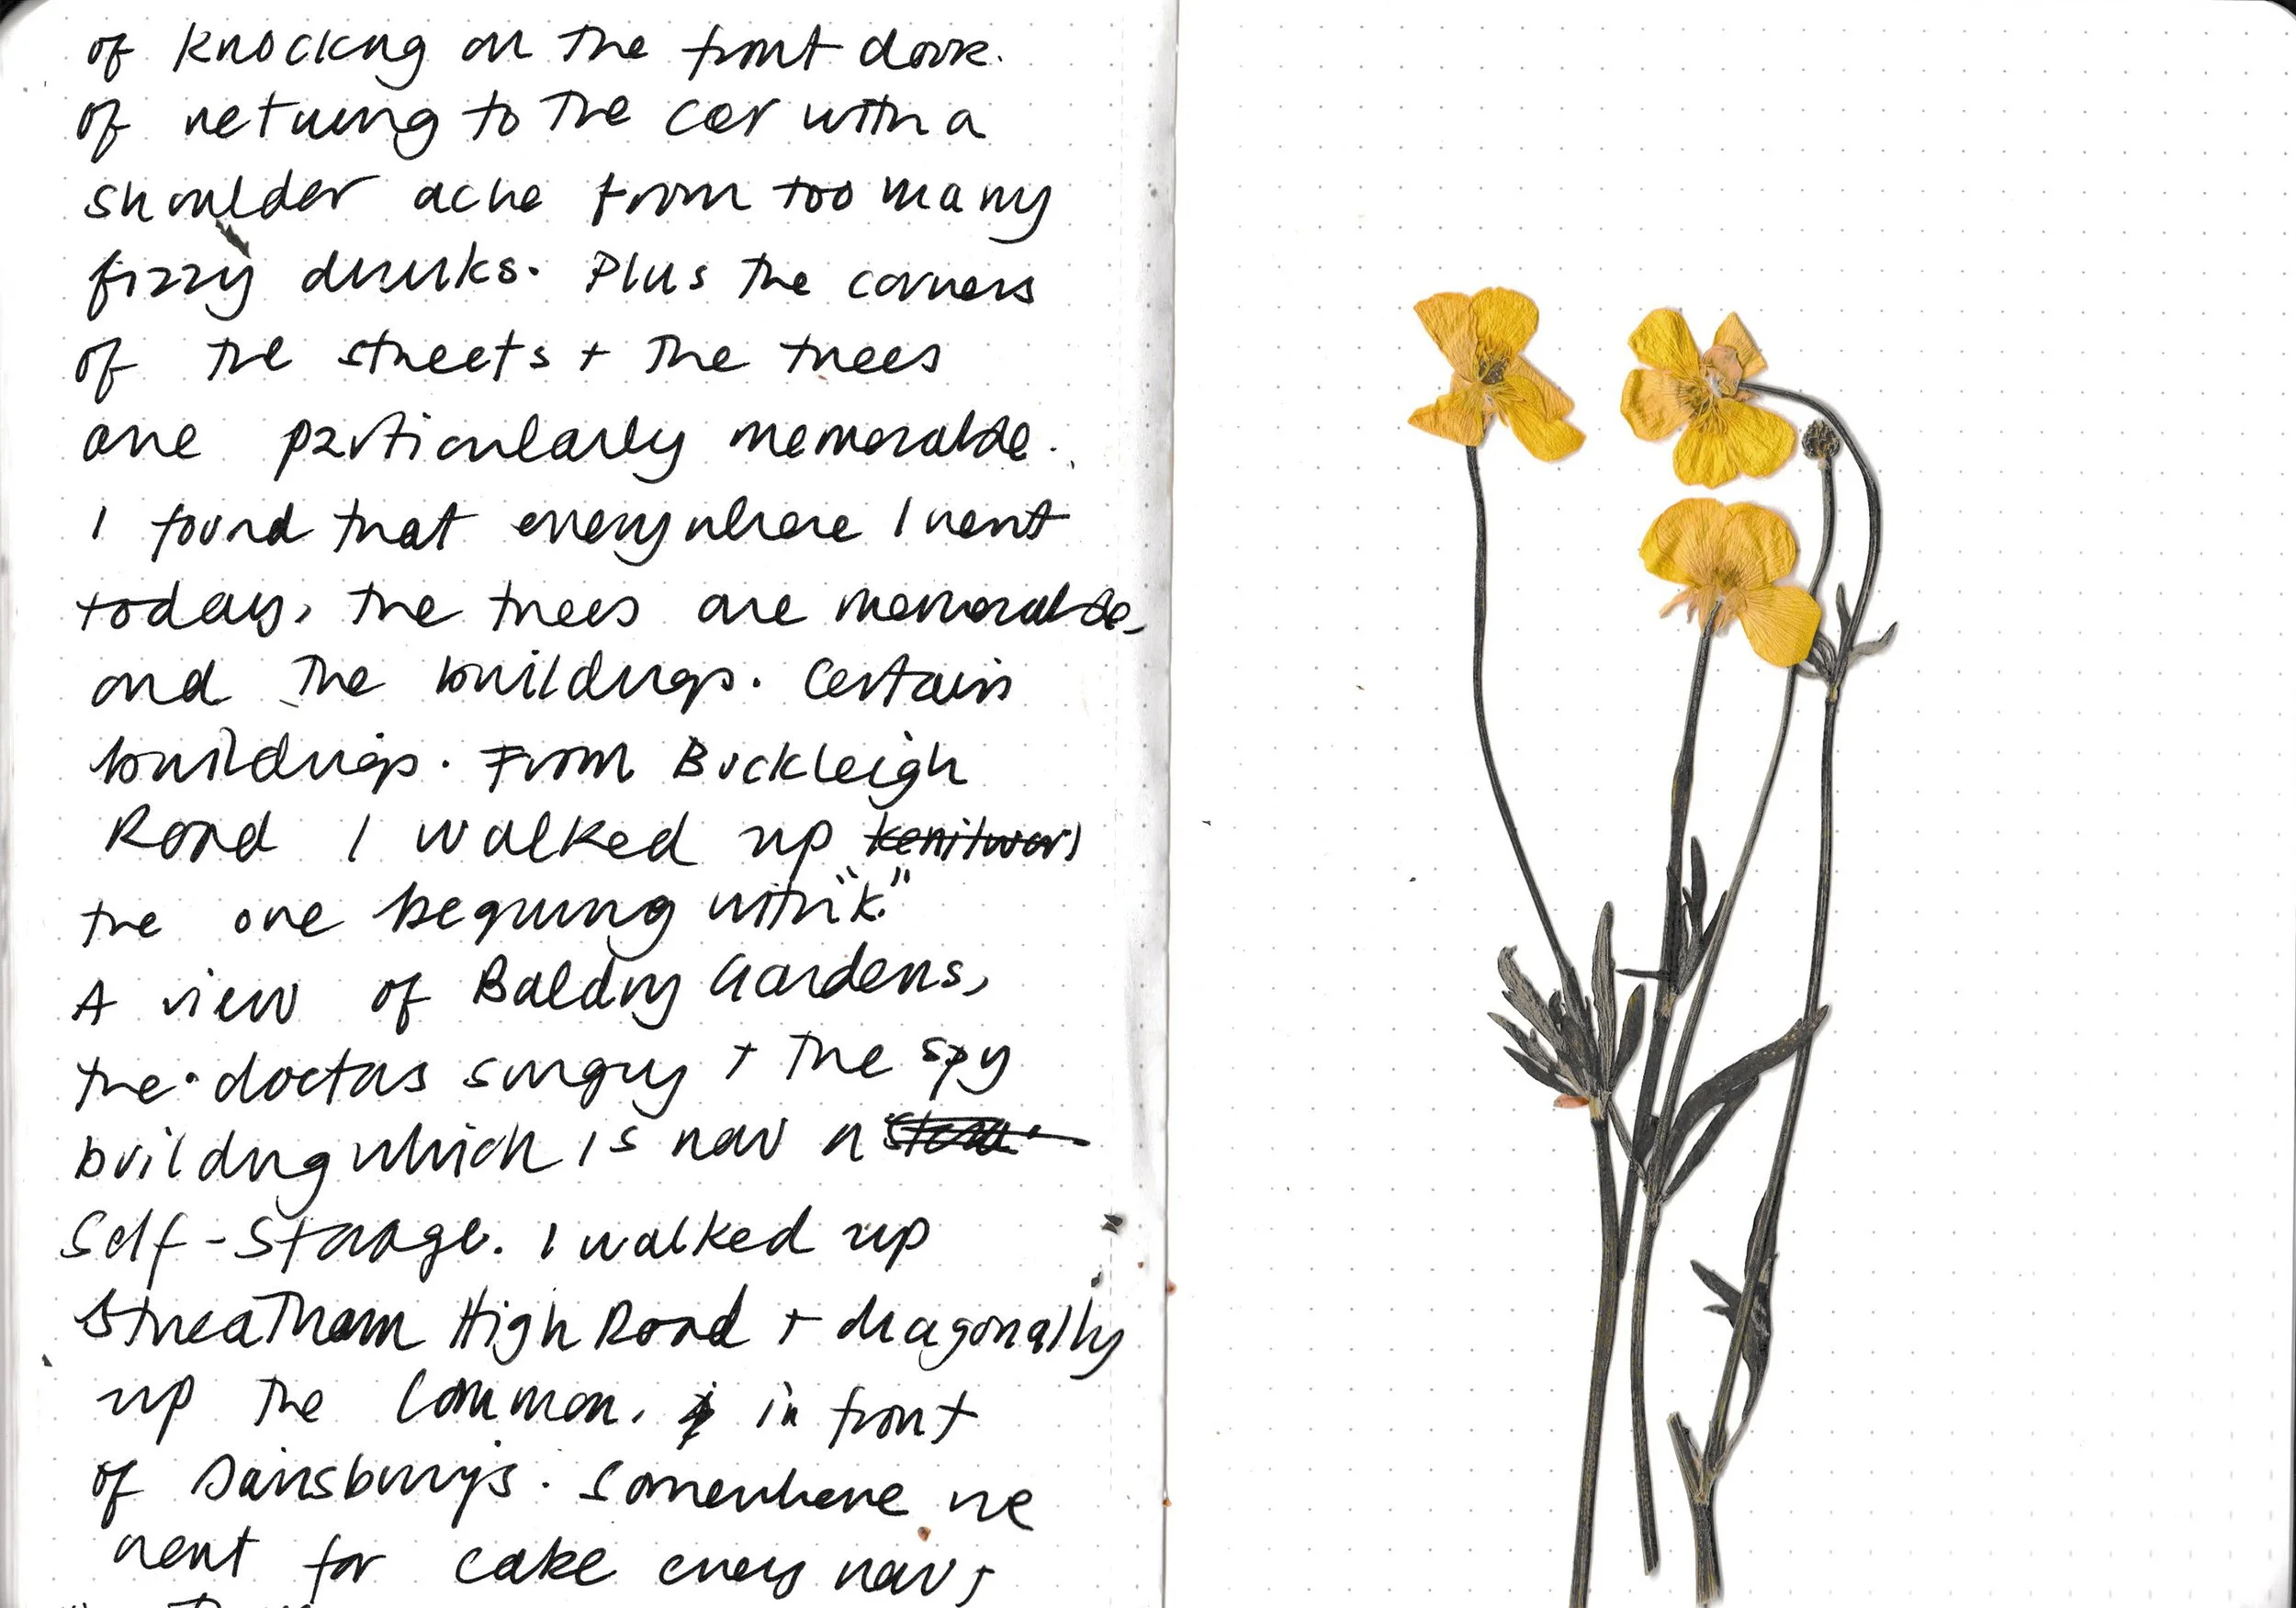 of knocking on the front door.
of returning to the car with a
shoulder ache from too many
fizzy drinks. Plus the corners
of the streets + the trees
are particularly memorable.
I found that everywhere I went
today, the trees are memorable,
and the buildings. Certain
buildings. From Buckleigh
Road I walked up kenilwor
the one beginning with "k."
A view of Baldry Gardens,
the doctors surgery + the spy
building which is now a
Self-Storage. I walked up
Streatham High Road + diagonally
up the Common. in front
of Sainsburys. Somewhere we
went for cake every now +